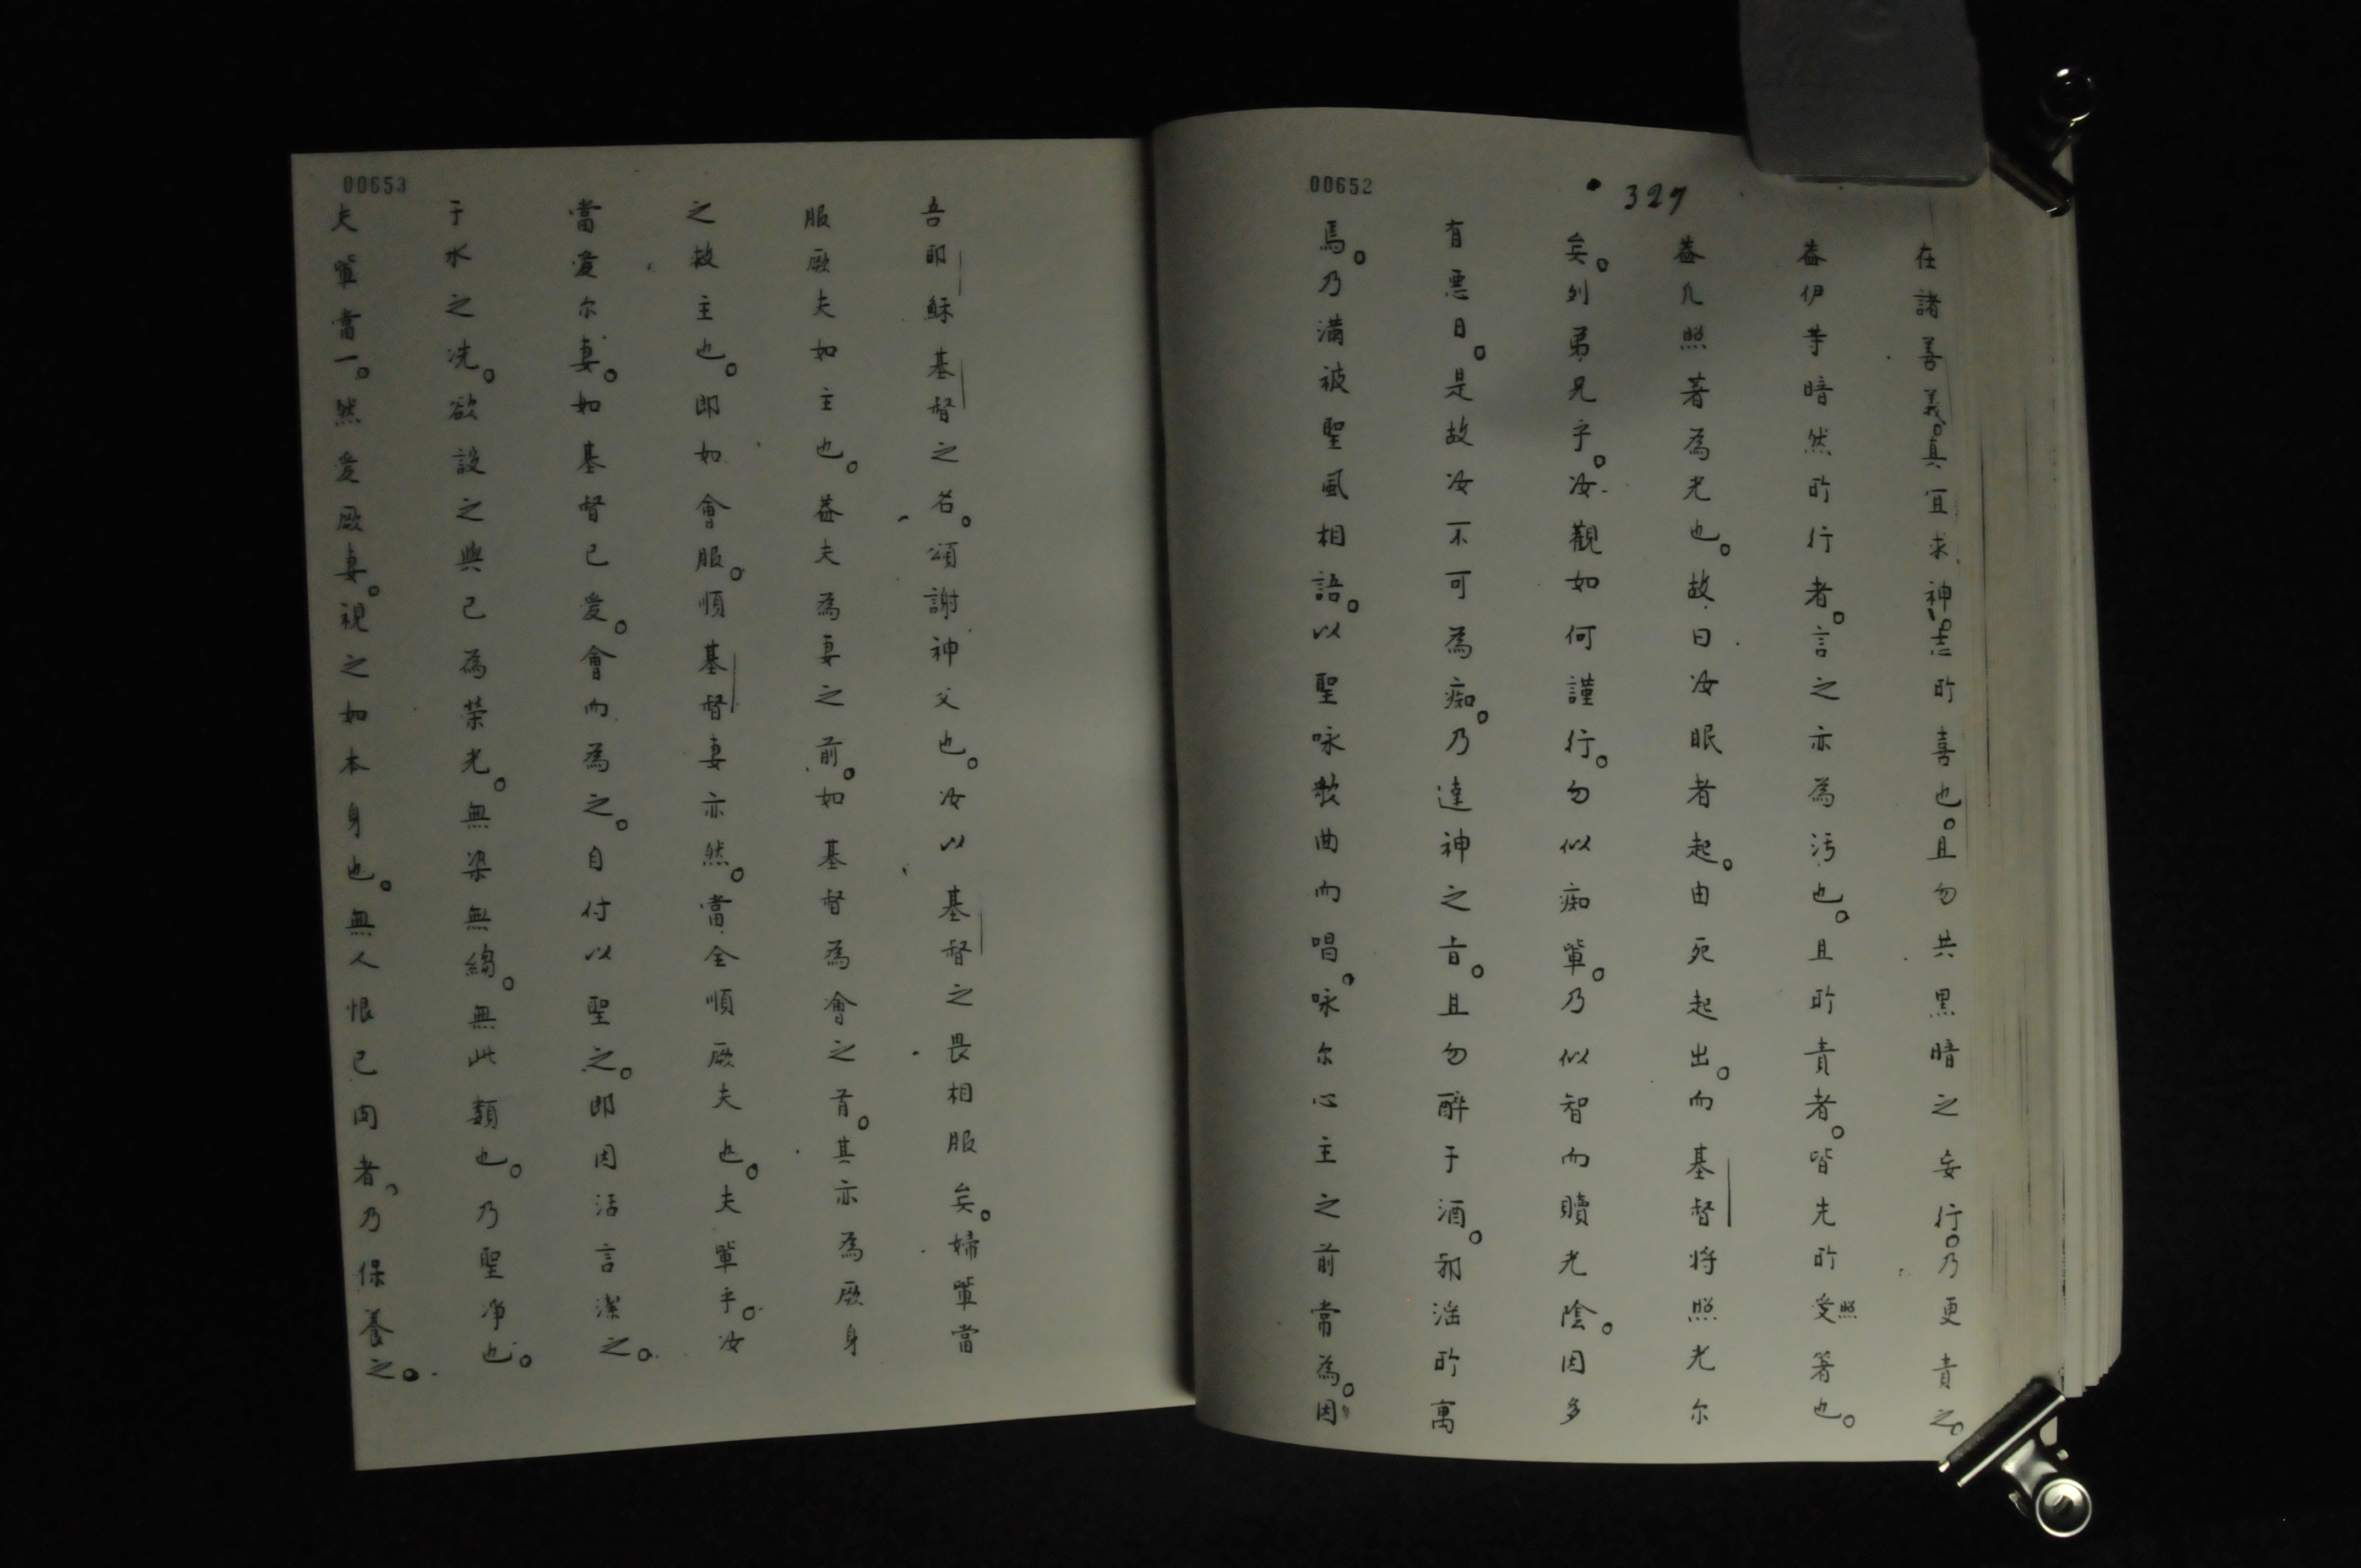 00652
327
在諸善義。真宜求神。志所喜也。且勿共黒暗之妄行。乃更責之。
葢伊等暗然所行者。言之亦為汚也。且所責者。皆先所受照著也。
葢凡照著為光也。故曰汝眠者起。由死起出。而基督将照光尔
矣。列弟兄乎。汝觀如何謹行。勿似痴軰。乃似智而贖光陰。因多
有悪日。是故汝不可為痴。乃達神之旨。且勿醉于酒。邪滛所寓
焉。乃満被聖風相語。以聖咏歌曲而唱。咏尔心主之前常為。因
00653
吾耶穌基督之名。頌謝神父也。汝以基督之畏相服矣。婦軰當
服厥夫如主也。葢夫為妻之前。如基督為會之首。其亦為厥身
之救主也。即如會服。順基督妻亦然。當全順厥夫也。夫軰乎。汝
當愛尔妻。如基督已愛。會而為之。自付以聖之。即因活言潔之。
于水之洗。欲設之與己為荣光。無染無縐。無此類也。乃聖净也。
夫軰當一。然愛厥妻。視之如本身也。無人恨己肉者。乃保養之。